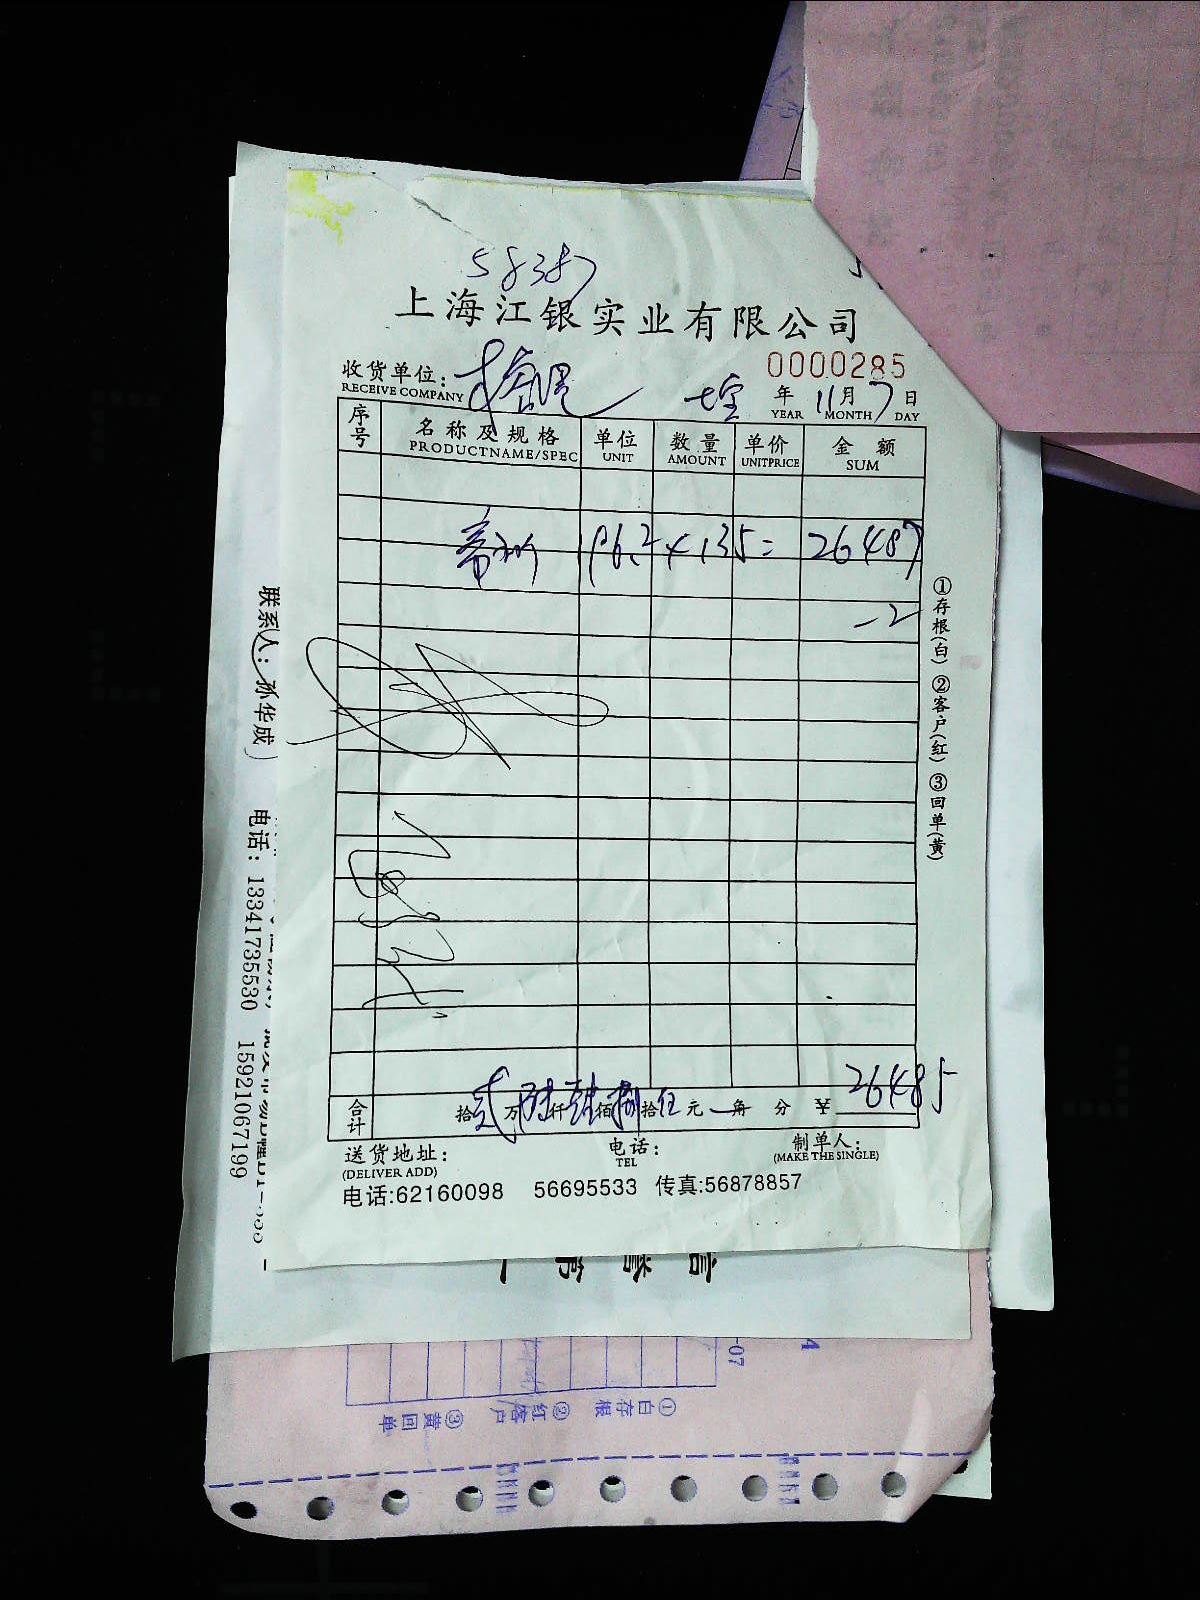 58387
上海江银实业有限公司
0000285
收货单位：
RECEIVE COMPANY
年 11 月 7 日
YEAR MONTH DAY
序号 名称及规格 单位 数量 单价 金额
PRODUCTNAME/SPEC UNIT AMOUNT UNITPRICE SUM
196.2×135= 26487
-2
合计 拾 贰 万 陆 仟 肆 佰 捌 拾 伍 元 角 分 ¥ 26485
送货地址： 电话： 制单人：
(DELIVER ADD) TEL (MAKE THE SINGLE)
电话:62160098 56695533 传真:56878857
①存根(白) ②客户(红) ③回单(黄)
联系人：孙华成
电话：13341735530 15921067199
-07
①白存根 ②红客户 ③黄回单